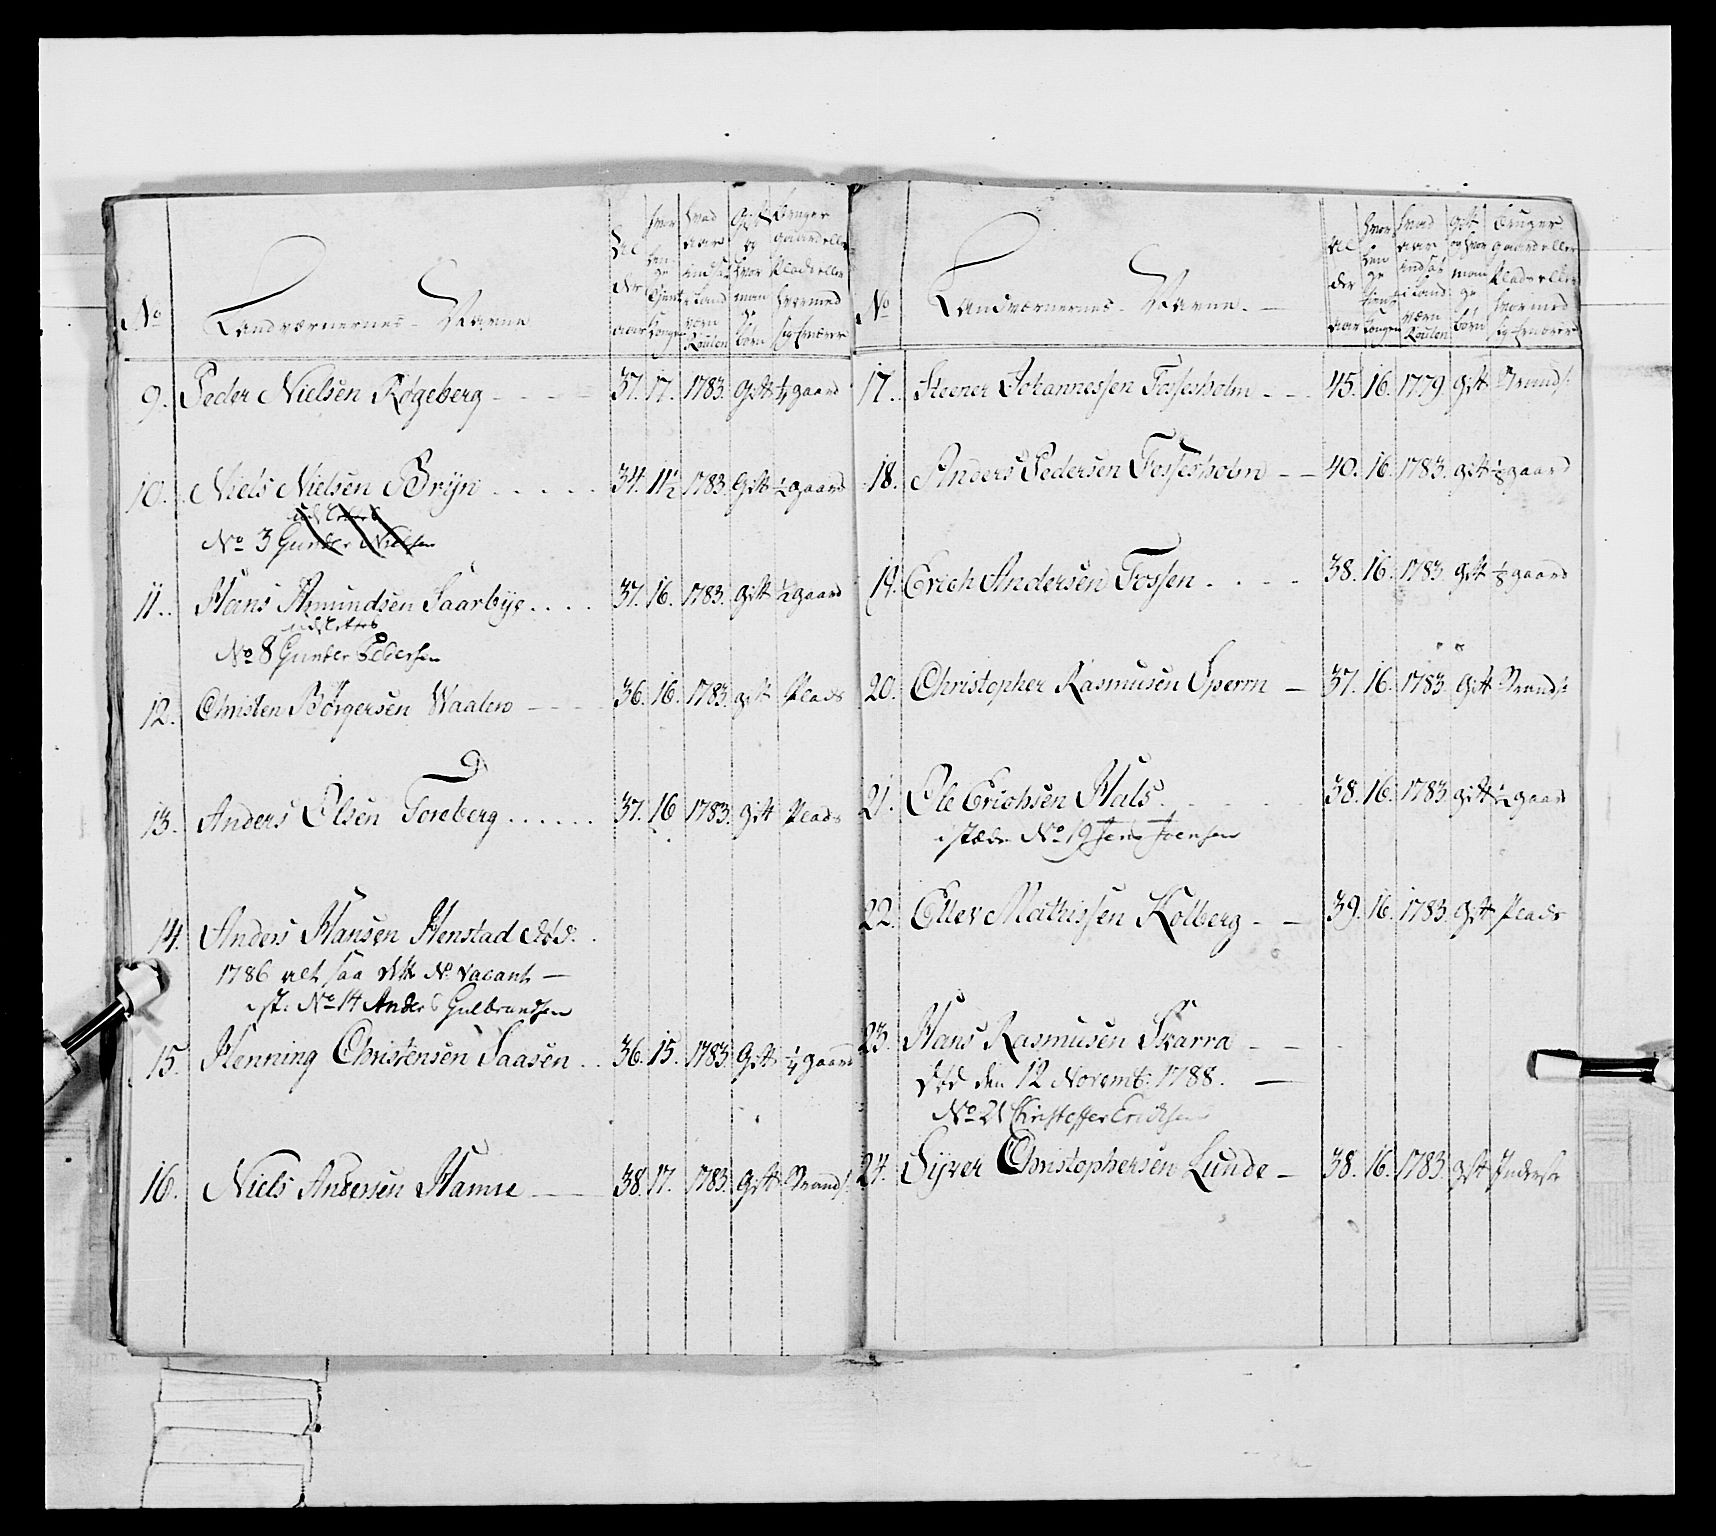 No
Landværnernes Navne
Al
der
aar
9. Peder Nielsen Røgeberg 37. 17. 1783. Gift ½ gaard
10. Niels Nielsen Bryn 34. 11½ 1783. Gift ½ gaard
No 3 Gunder Nielsen
11. Hans Amundsen Saarbye 37. 16. 1783. Gift ½ gaard
No 8 Gunder Pedersen
12. Christen Børgersen Waalen 36. 16. 1783. gift Plads
13. Anders Olsen Foreberg 37. 16 1783. Gift Plads
14. Anders Hansen Henstad død
1786 alt saa dette No vacant —
ist. No 14 Anders Gulbrandsen
15. Henning Christensen Saasen 36. 15. 1783. Gift ¼ gaard
16. Niels Andersen Hamre 38. 17. 1783. Gift
No
Landværnernes Navne
Al
der
aar
17. Steener Johannessen Fossesholm 45. 16. 1779. Gift
18. Anders Pedersen Fossesholm 40. 16. 1783. gift ⅛ gaard
19. Erich Andersen Fossen 38. 16. 1783. Gift ⅛ gaard
20. Christopher Rasmusen Sperrn 37. 16. 1783. Gift
21. Ole Erichsen Hals 38. 16. 1783 gift ½ gaard
i stæden No 19 Jens Joensen
22. Ellev Mathissen Kolberg 39. 16. 1783. Gift Plads
23. Hans Rasmusen Skarra
død den 12 Novemb. 1788.
No 21 Christoffer Erichsen
24. Syver Christophersen Lunde 38. 16. 1783. Gift Inderste